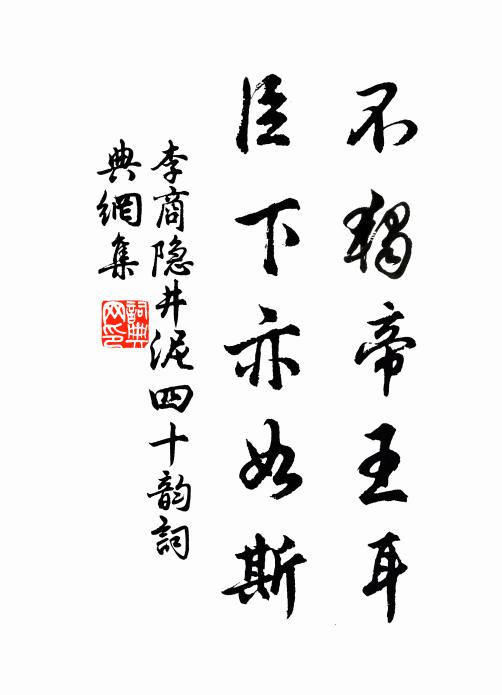 不獨帝王耳
臣下亦如斯
李商隐井泥四十韵詞
典網集
詞典網印